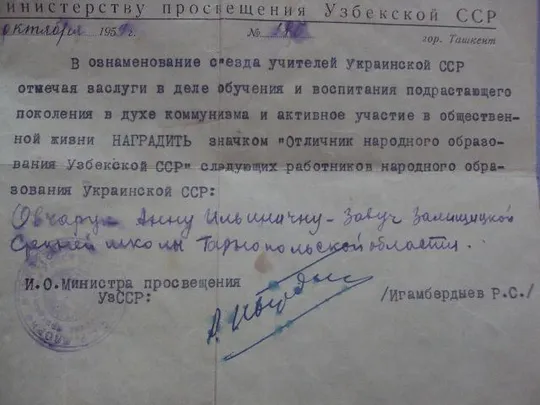 министерству просвещения Узбекской ССР
октября 195 г. №
гор. Ташкент
В ознаменование с'езда учителей Украинской ССР
отмечая заслуги в деле обучения и воспитания подрастающего
поколения в духе коммунизма и активное участие в обществен-
ной жизни НАГРАДИТЬ значком "Отличник народного образо-
вания Узбекской ССР" следующих работников народного обра-
зования Украинской ССР:
Овчарук Анну Ильиничну - Завуч Залищицкой
Средней школы Тарнопольской области.
И.О.Министра просвещения
УзССР:
/Игамбердыев Р.С./